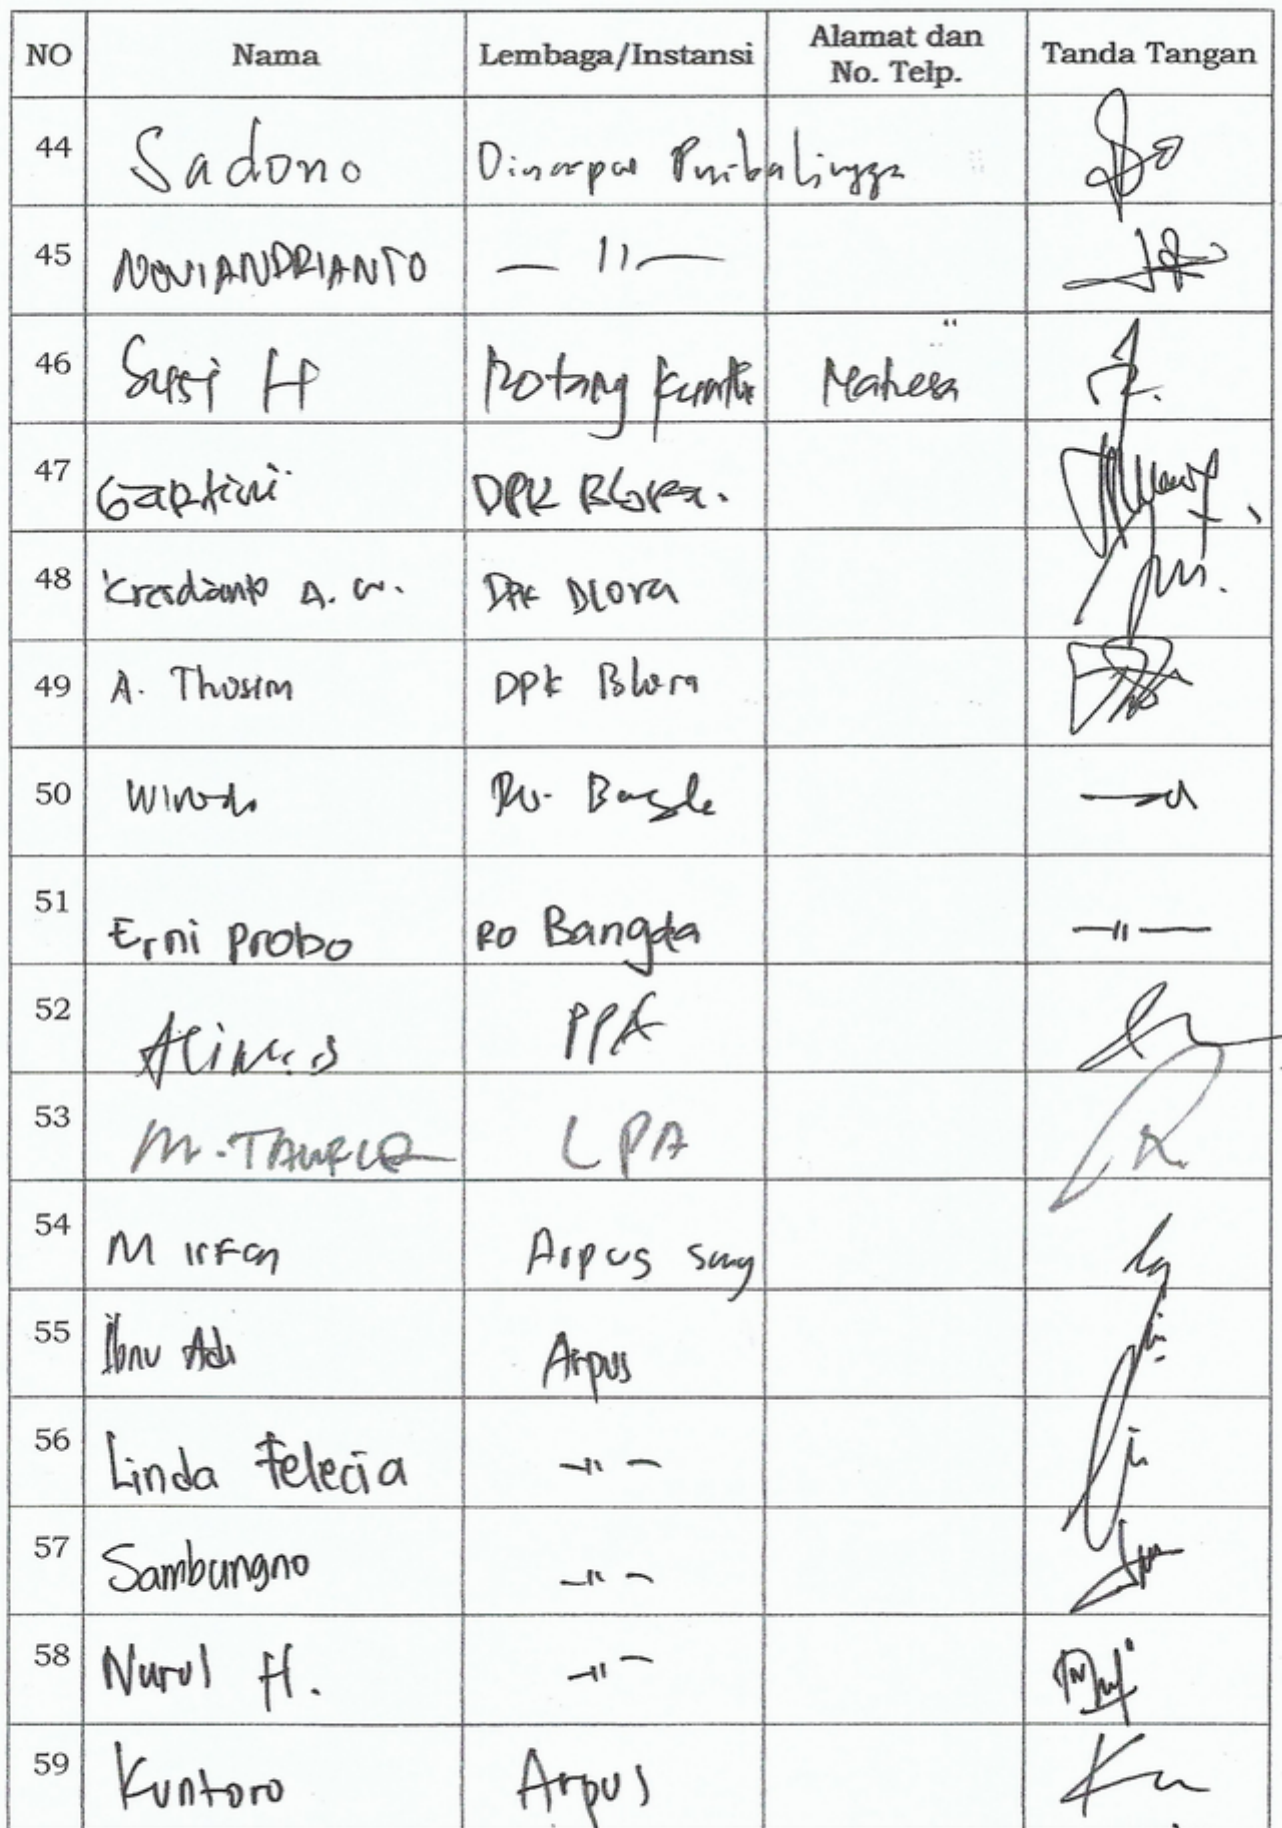 NO Nama Lembaga/Instansi Alamat dan No. Telp. Tanda Tangan
44 Sadono Dinarpus Purbalingga
45 NOVIANDRIANTO — 11 —
46 Susi H Mahesa
47 Gartini DPK Blora.
48 A. W. DPK Blora
49 A. Thosim DPK Blora
50
51 Erni probo RO Bangda —11—
52 PPA
53 M. TAUFIQ LPA
54 M irfan Arpus smg
55 Ibnu Adi Arpus
56 Linda Felecia —11—
57 Sambungno —11—
58 Nurul H. —11—
59 Kuntoro Arpus